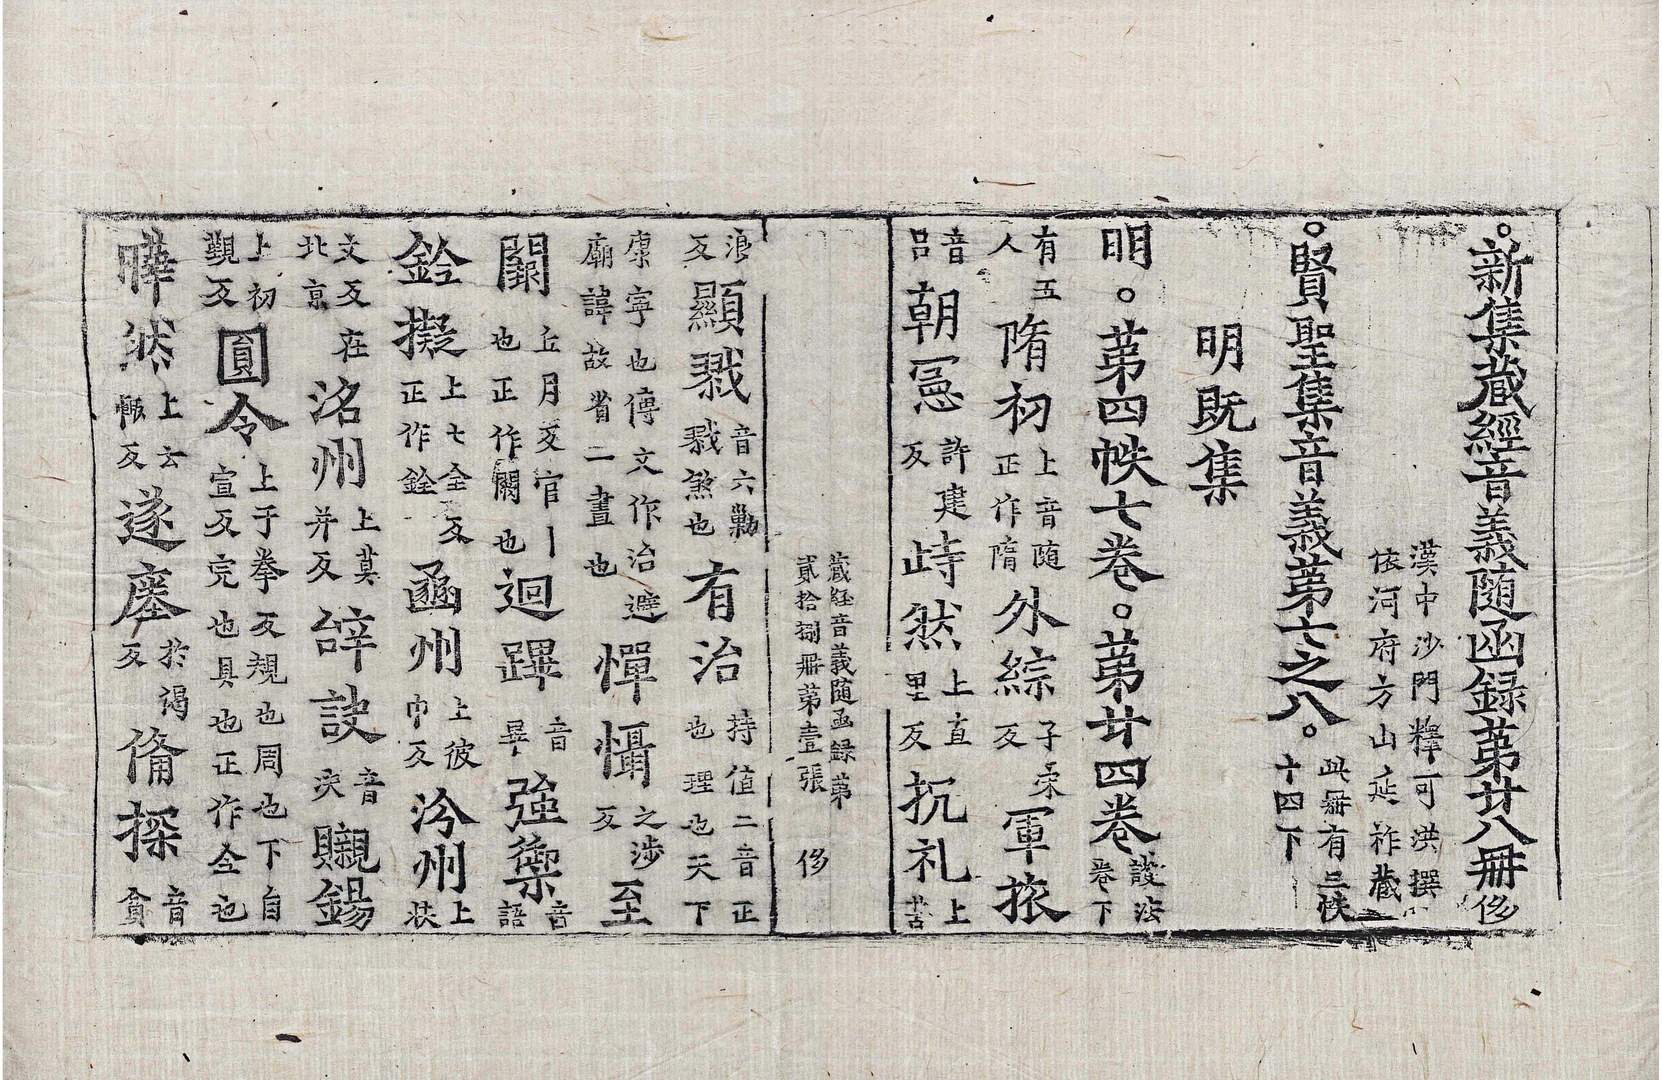 。新集藏經音義随函録第廿八冊侈
漢中沙門釋可洪撰
依河府方山延祚藏
。賢聖集音義第七之八。此冊有三帙十四下
明既集
明。第四帙七卷。第廿四卷護法卷下
有五人隋初上音随正作隋外綜子宋反軍旅
音吕朝憲許建反峙然上直里反抗礼上苦
藏経音義随函録第
貳拾捌冊第壹張 侈
浪反顯戮音六勠戮煞也有治持值二音正也理也天下
康寧也傳文作治避廟諱故省二畫也憚懾之涉反至
闑丘月反官丨也正作闕也迴蹕音畢強禦音語
鈴擬上七全反正作銓凾州上彼巾反汾州上扶
文反在北京洺州上莫并反辞訣音决䞋錫
上初覲反圎令上于拳反規也周也下自宣反完也具也正作全也
曄然上云輒反遂瘞於谒反脩探音貪